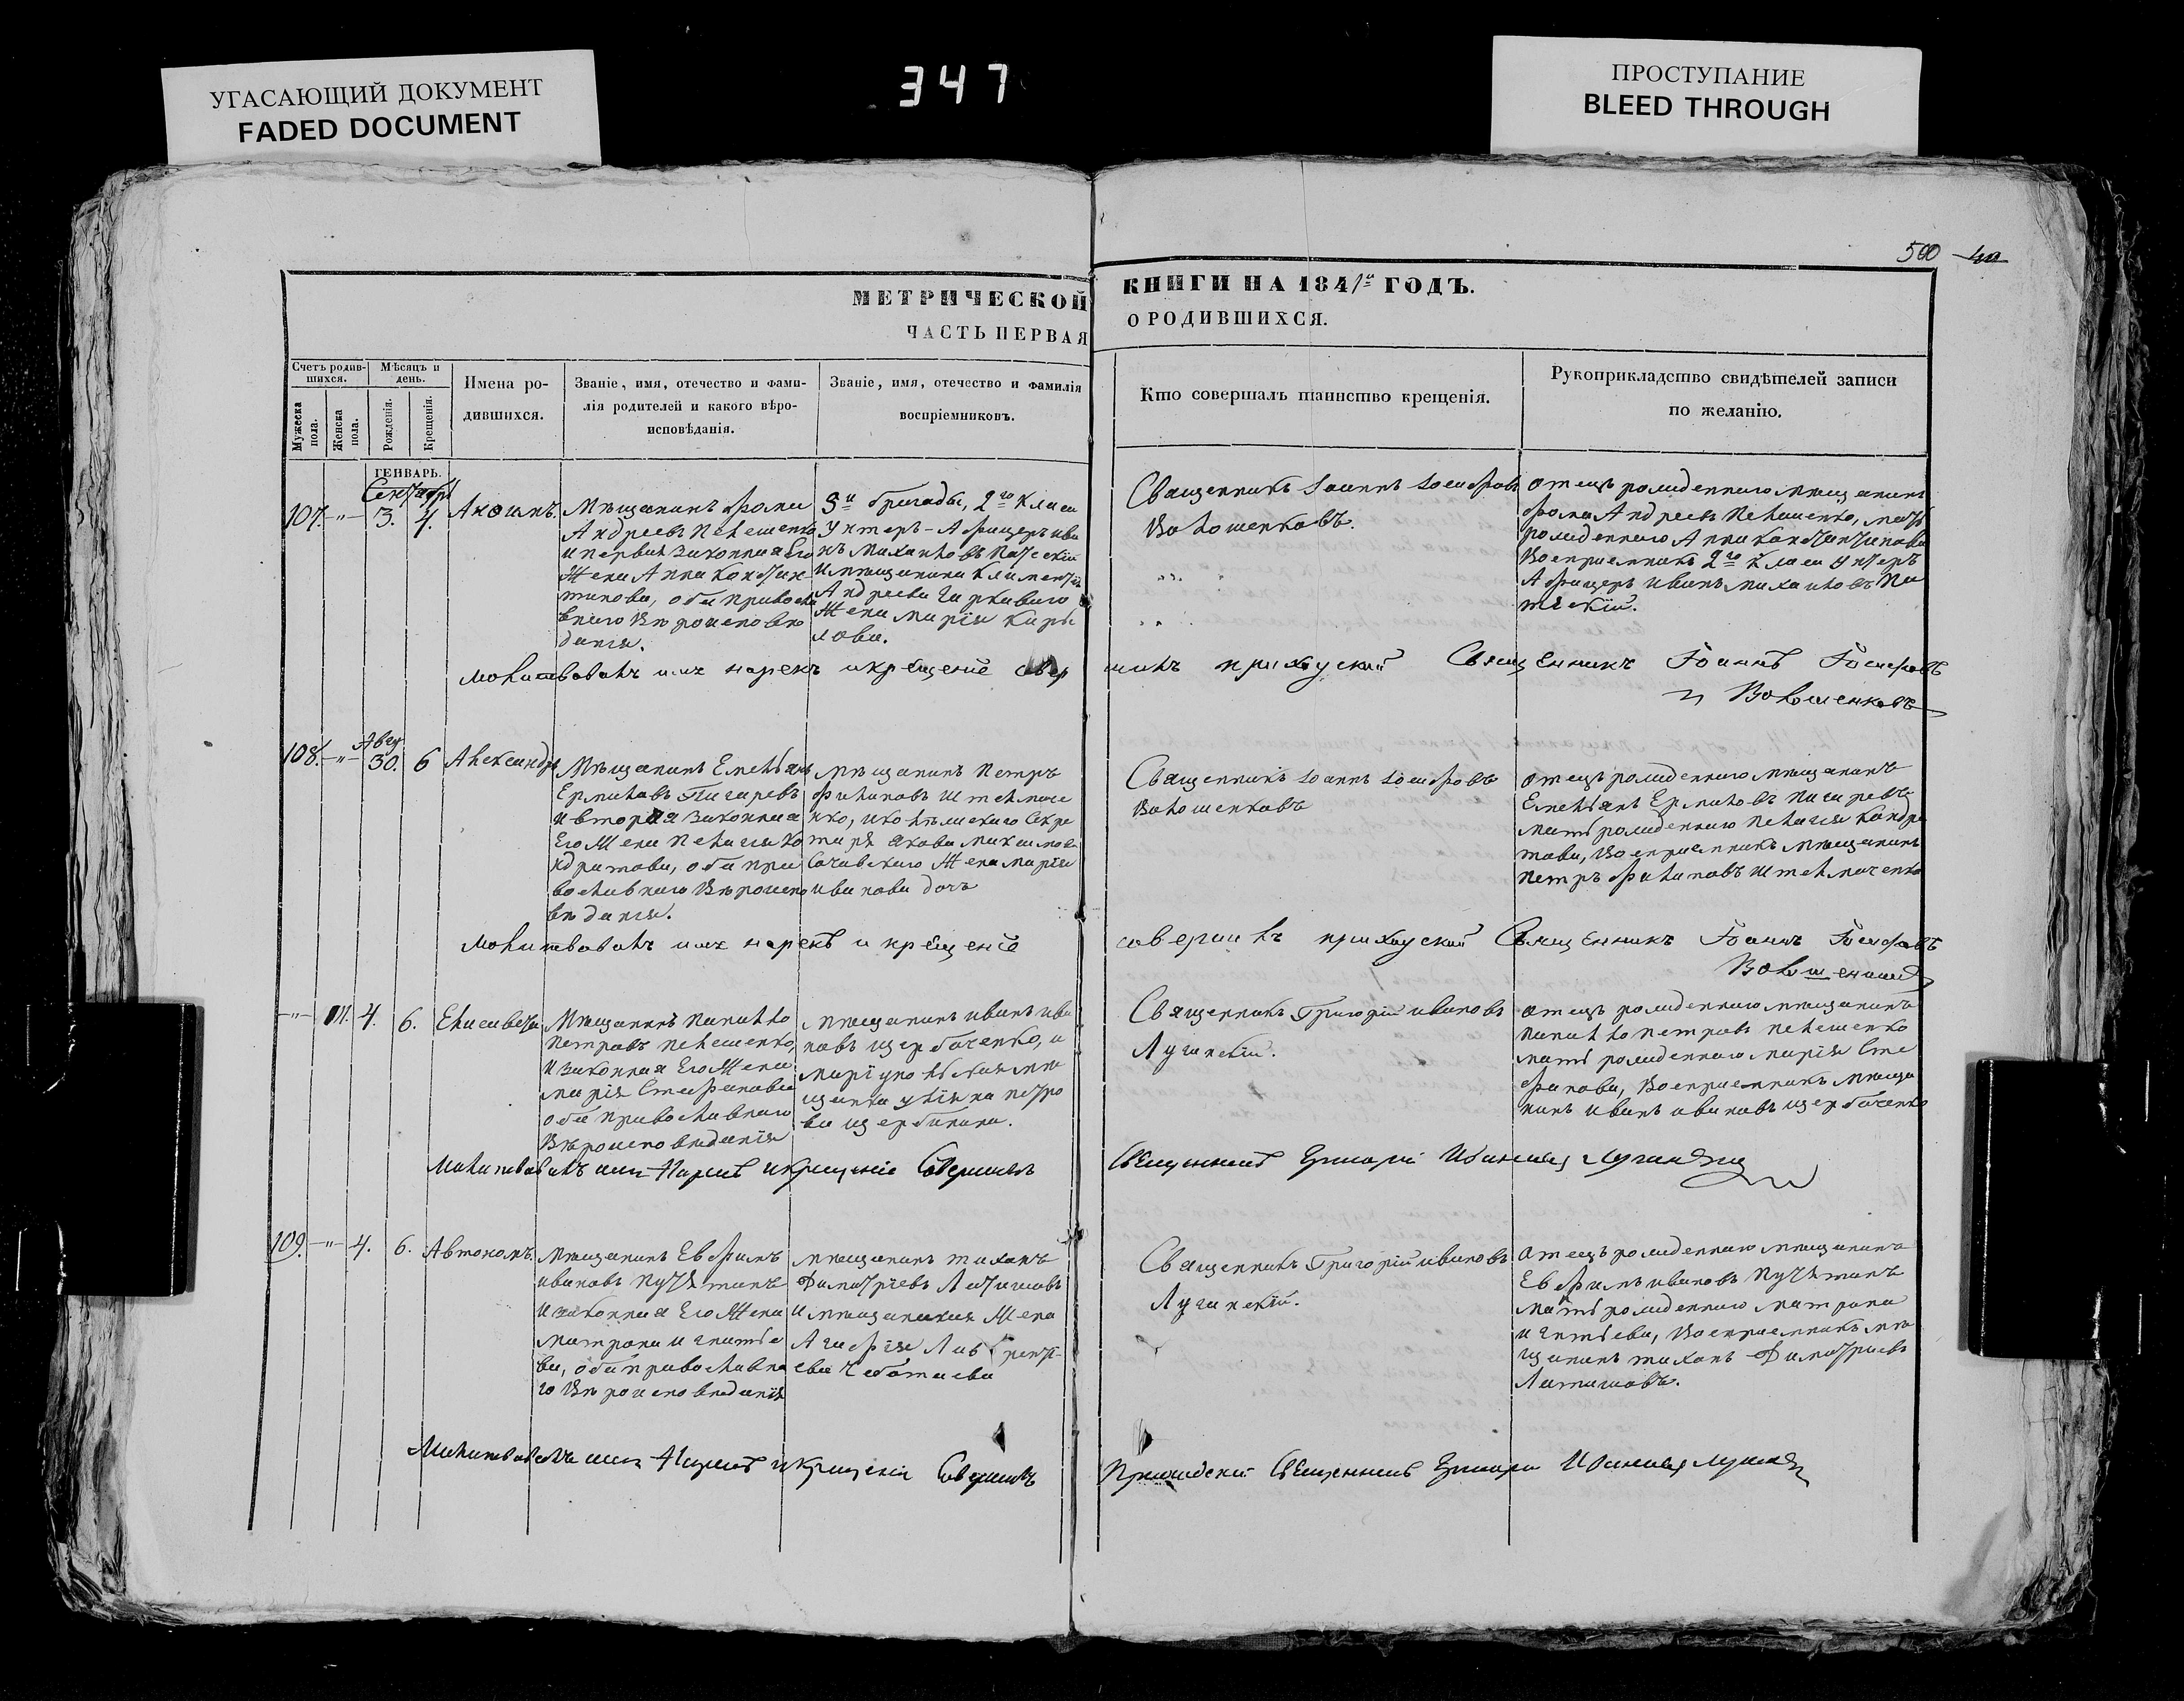 УГАСАЮЩИЙ ДОКУМЕНТ
FADED DOCUMENT
347
ПРОСТУПАНИЕ
BLEED THROUGH
500
МЕТРИЧЕСКОЙ КНИГИ НА 1841й ГОДЪ.
ЧАСТЬ ПЕРВАЯ О РОДИВШИХСЯ.
Счетъ родив-
шихся.
Мѣсяцъ и
день.
Мужеска
пола.
Женска
пола.
Рожденія.
Крещенія.
Имена ро-
дившихся.
Званіе, имя, отечество и фами-
лія родителей и какого вѣро-
исповѣданія.
Званіе, имя, отечество и фамилія
воспріемниковъ.
Кто совершалъ таинство крещенія.
Рукоприкладство свидѣтелей записи
по желанію.
ГЕНВАРЬ.
Сентябрь
107. -"- 3. 4.
Мѣщанинъ Фома
Андреевъ Пелешенко
и первая законная Его
Жена Анна Констан-
тинова, оба правосла
внаго вѣроисповѣ
данія.
3й бригады, 2го класа
Унтеръ-Афицеръ ива
нъ михаиловъ
и мѣщанина Климентія
Андреева
Жена марія Кири
лова.
Священникъ Іоаннъ Іосифовъ
Волошенковъ.
отецъ рожденнаго мѣщанинъ
Фома Андреевъ Пелешенко, мать
рожденнаго Анна Константинова
Воспріемникъ 2го Класа Унтеръ
Афицеръ иванъ михаиловъ
молитвовалъ имя нарекъ и крещеніе совер
шилъ приходскій Священникъ Іоаннъ Іосифовъ
Волошенковъ
108. -"- Авгу 30. 6
Александръ
Мѣщанинъ Емельянъ
Ермиловъ Пигаревъ
и вторая законная
Его Жена Пелагея Ко
ндратова, оба пра
вославнаго вѣроиспо
вѣданія.
мѣщанинъ Петръ
Филиповъ Штельмаче
нко, и колѣжскаго Секре
таря якова михаилова
Жена марія
иванова дочь
Священникъ Іоаннъ Іосифовъ
Волошенковъ
отецъ рожденнаго мѣщанинъ
Емельянъ Ермиловъ Пигаревъ
мать рожденнаго Пелагея Кондра
това, Воспріемникъ мѣщанинъ
Петръ Филиповъ Штельмаченко
молитвовалъ имя нарекъ и крещеніе
совершилъ приходскій Священникъ Іоаннъ Іосифовъ
-"- 4. 6.
Елисавета
Мѣщанинъ
Петровъ Пелешенко,
и законная Его Жена
марія Стефанова
оба православнаго
вѣроисповѣданія
мѣщанинъ иванъ ива
новъ щербаченко, и
мѣ
щанка уліяна петро
ва щербинина.
Священникъ Григорій ивановъ
Лугинскій.
отецъ рожденнаго мѣщанинъ
Петровъ Пелешенко
мать рожденнаго марія Сте
фанова, Воспріемникъ мѣща
нинъ иванъ ивановъ щербаченко
Молитвовалъ имя Нарекъ и крещеніе Совершилъ
Священникъ Григорій Ивановъ Лугинскій
109. -"- 4. 6.
Автономъ.
Мѣщанинъ Евфимъ
ивановъ
и законная Его Жена
матрона игнатье
ва, оба православна
го вѣроисповѣданія
мѣщанинъ тихонъ
Димитріевъ Латишовъ
и мѣщанская Жена
Агафія Лаврентi-
ева Чеботаева
Священникъ Григорій ивановъ
Лугинскій.
отецъ рожденнаго мѣщанинъ
Евфимъ ивановъ
мать рожденнаго матрона
игнатьева, Воспріемникъ мѣ
щанинъ тихонъ Димитріевъ
Латишовъ.
Молитвовалъ имя Нарекъ и крещеніе Совершилъ
Приходскій Священникъ Григорій Ивановъ Лугинскій